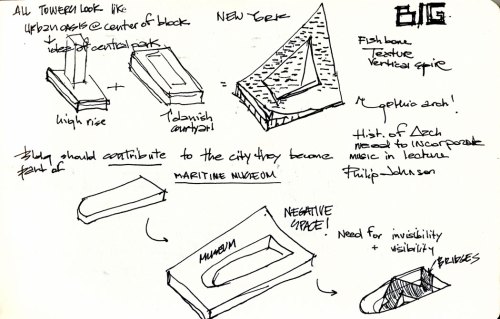 ALL TOWERS LOOK like:
urban oasis @ center of block
idea of central park
NEW YORK
BIG
Fishbone
Texture
Vertical spire
+
=
high rise
danish
courtyard
gothic arch!
Hist. of Arch
need to incorporate
music in lecture
Philip Johnson
Bldg should contribute to the city they become
part of
MARITIME MUSEUM
NEGATIVE
SPACE!
MUSEUM
Need for invisibility
+ visibility
BRIDGES